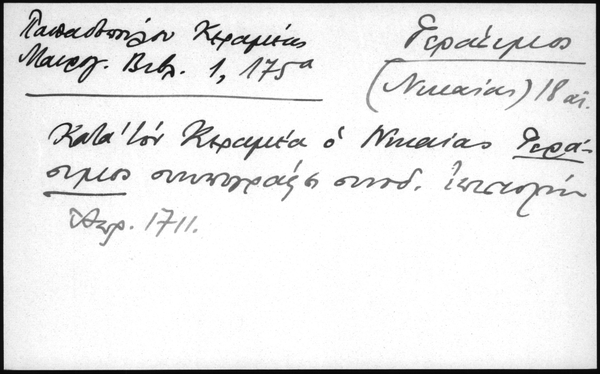 Παπαδοπούλου Κεραμέας
Μαυρογ. Βιβλ. 1, 175α
Γεράσιμος
(Νικαίας) 18 αἰ.
Κατὰ τὸν Κεραμέα ὁ Νικαίας Γερά-
σιμος συνυπογράφει συνοδ. ἐπιστολὴν
Ἀπρ. 1711.